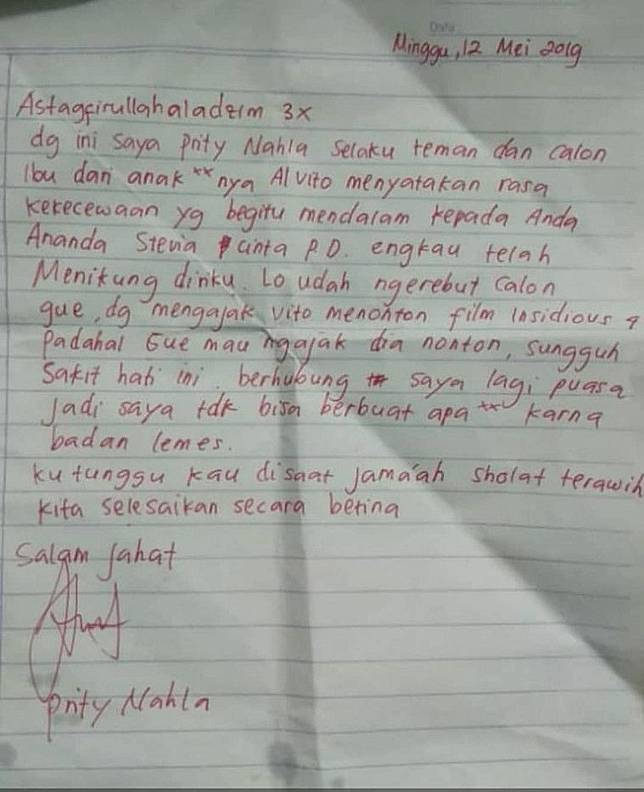 Date
Minggu, 12 Mei 2019
Astagfirullahaladzim 3x
dg ini saya Prity Nahla selaku teman dan calon
Ibu dan anak "nya Al vito menyatakan rasa
kekecewaan yg begitu mendalam kepada Anda
Ananda Stevia cinta P.D. engkau telah
Menikung diriku. Lo udah ngerebut calon
gue, dg mengajak vito menonton film Insidious 4
Padahal Gue mau ngajak dia nonton, sungguh
Sakit hati ini. berhubung saya lagi puasa
Jadi saya tdk bisa berbuat apa" karna
badan lemes.
ku tunggu kau disaat jama'ah sholat terawih
kita selesaikan secara betina
Salam Jahat
Prity Nahla